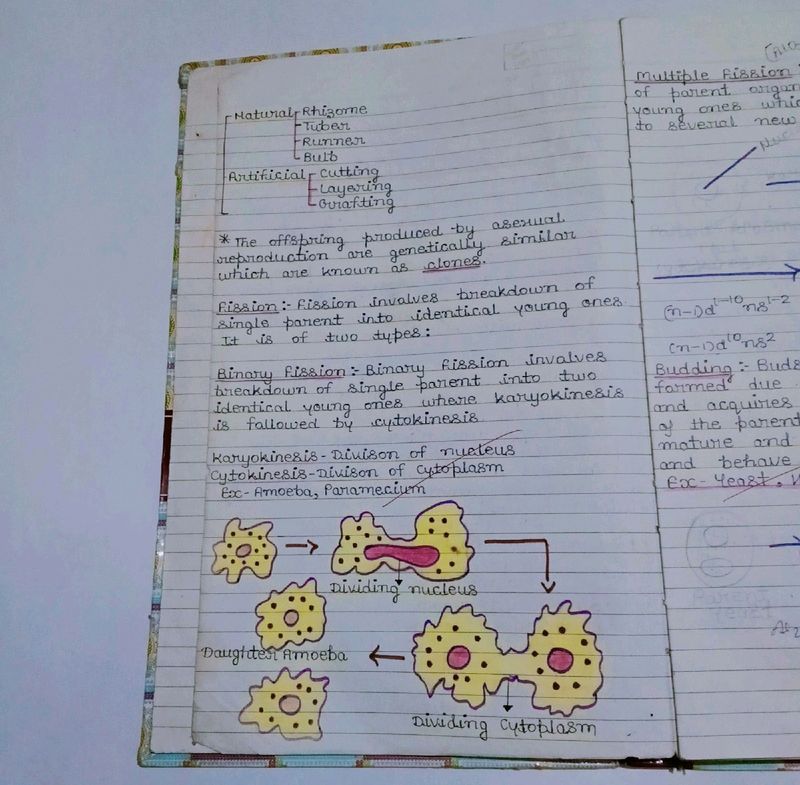 Natural Rhizome
Tuber
Runner
Bulb
Artificial Cutting
Layering
Grafting
* The offspring produced by asexual
reproduction are genetically similar
which are known as clones.
Fission :- Fission involves breakdown of
single parent into identical young ones
It is of two types:
Binary Fission :- Binary Fission involves
breakdown of single parent into two
identical young ones where karyokinesis
is followed by cytokinesis
Karyokinesis - Divison of nucleus
Cytokinesis - Divison of cytoplasm
Ex - Amoeba, Paramecium
Dividing nucleus
Daughter Amoeba
Dividing Cytoplasm
Multiple Fission :
of parent organ
young ones whic
to several new
(n-1)d¹⁻¹⁰ ns¹⁻²
(n-1)d¹⁰ ns²
Budding :- Buds
formed due
and acquires
of the parent
mature and
and behave
Ex - Yeast,